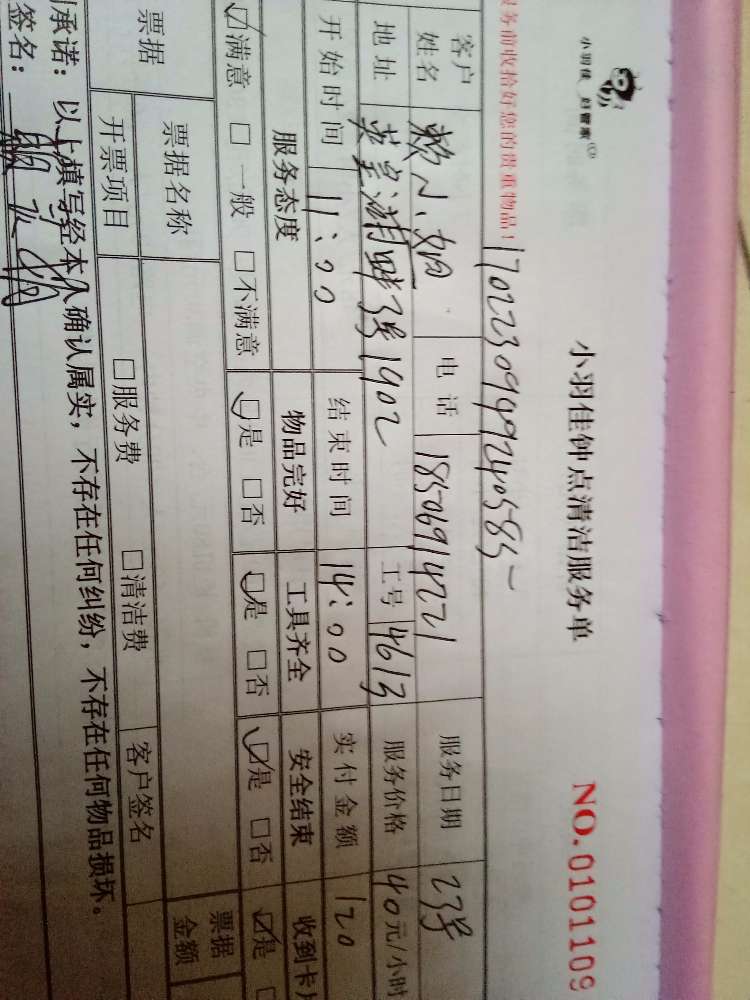 小羽佳 好管家
小羽佳钟点清洁服务单
NO.0101109
务前收拾好您的贵重物品！
17022309499240585
客户姓名 赖小姐 电话 18506914221 服务日期 23号
地址 3号1902 工号 4613 服务价格 40元/小时
开始时间 11:00 结束时间 14:00 实付金额 120
服务态度 物品完好 工具齐全 安全结束 收到卡片
☑满意 □一般 □不满意 ☑是 □否 ☑是 □否 ☑是 □否 ☑是
票据 票据名称 票据金额
开票项目 □服务费 □清洁费 客户签名
承诺：以上填写经本人确认属实，不存在任何纠纷，不存在任何物品损坏。
签名：